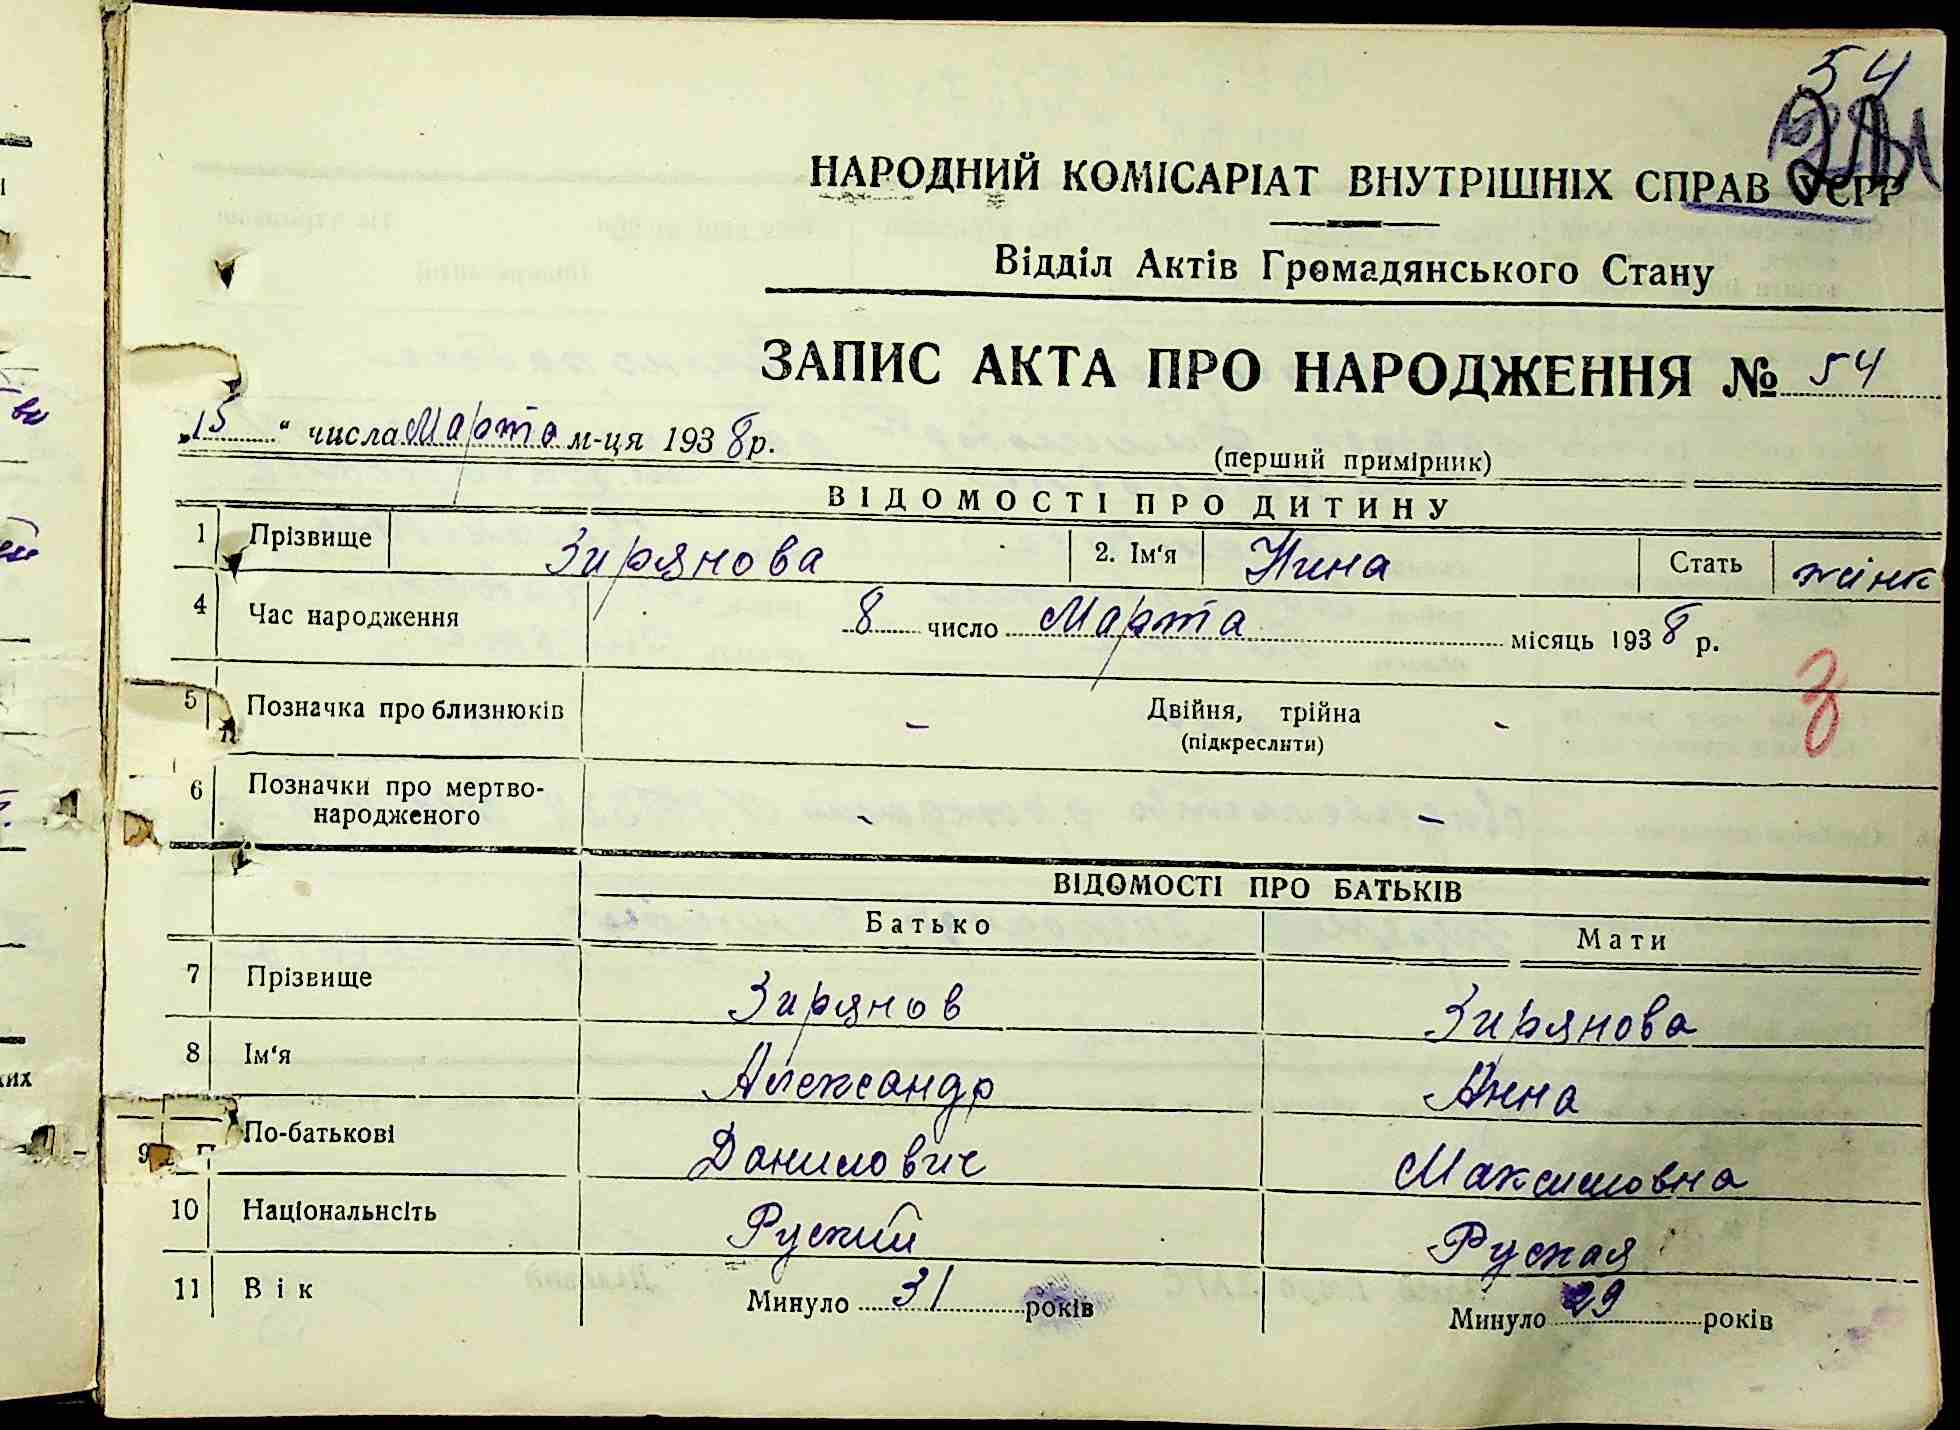 54
НАРОДНИЙ КОМІСАРІАТ ВНУТРІШНІХ СПРАВ УСРР
Відділ Актів Громадянського Стану
ЗАПИС АКТА ПРО НАРОДЖЕННЯ № 54
„15“ числа Марта м-ця 1938 р.
(перший примірник)
ВІДОМОСТІ ПРО ДИТИНУ
1 Прізвище Зирянова 2. Ім'я Нина Стать жінк
4 Час народження 8 число Марта місяць 1938 р.
5 Позначка про близнюків – Двійня, трійна –
(підкреслити)
З
6 Позначки про мертво-
народженого – –
ВІДОМОСТІ ПРО БАТЬКІВ
Батько Мати
7 Прізвище Зирянов Зирянова
8 Ім'я Александр Анна
9 По-батькові Данилович Максимовна
10 Національнсіть Руский Руская
11 Вік Минуло 31 років Минуло 29 років